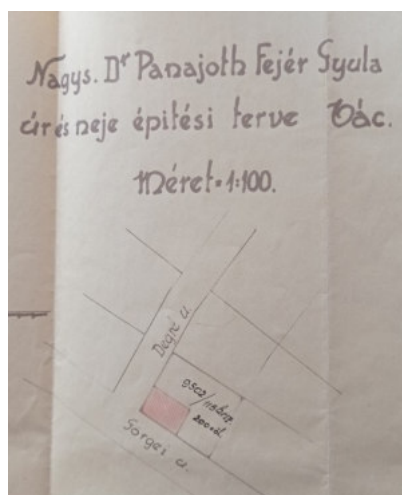 Nagys. Dr Panajoth Fejér Gyula
úr és neje építési terve Vác.
Méret=1:100.
Degré u.
Görgei u.